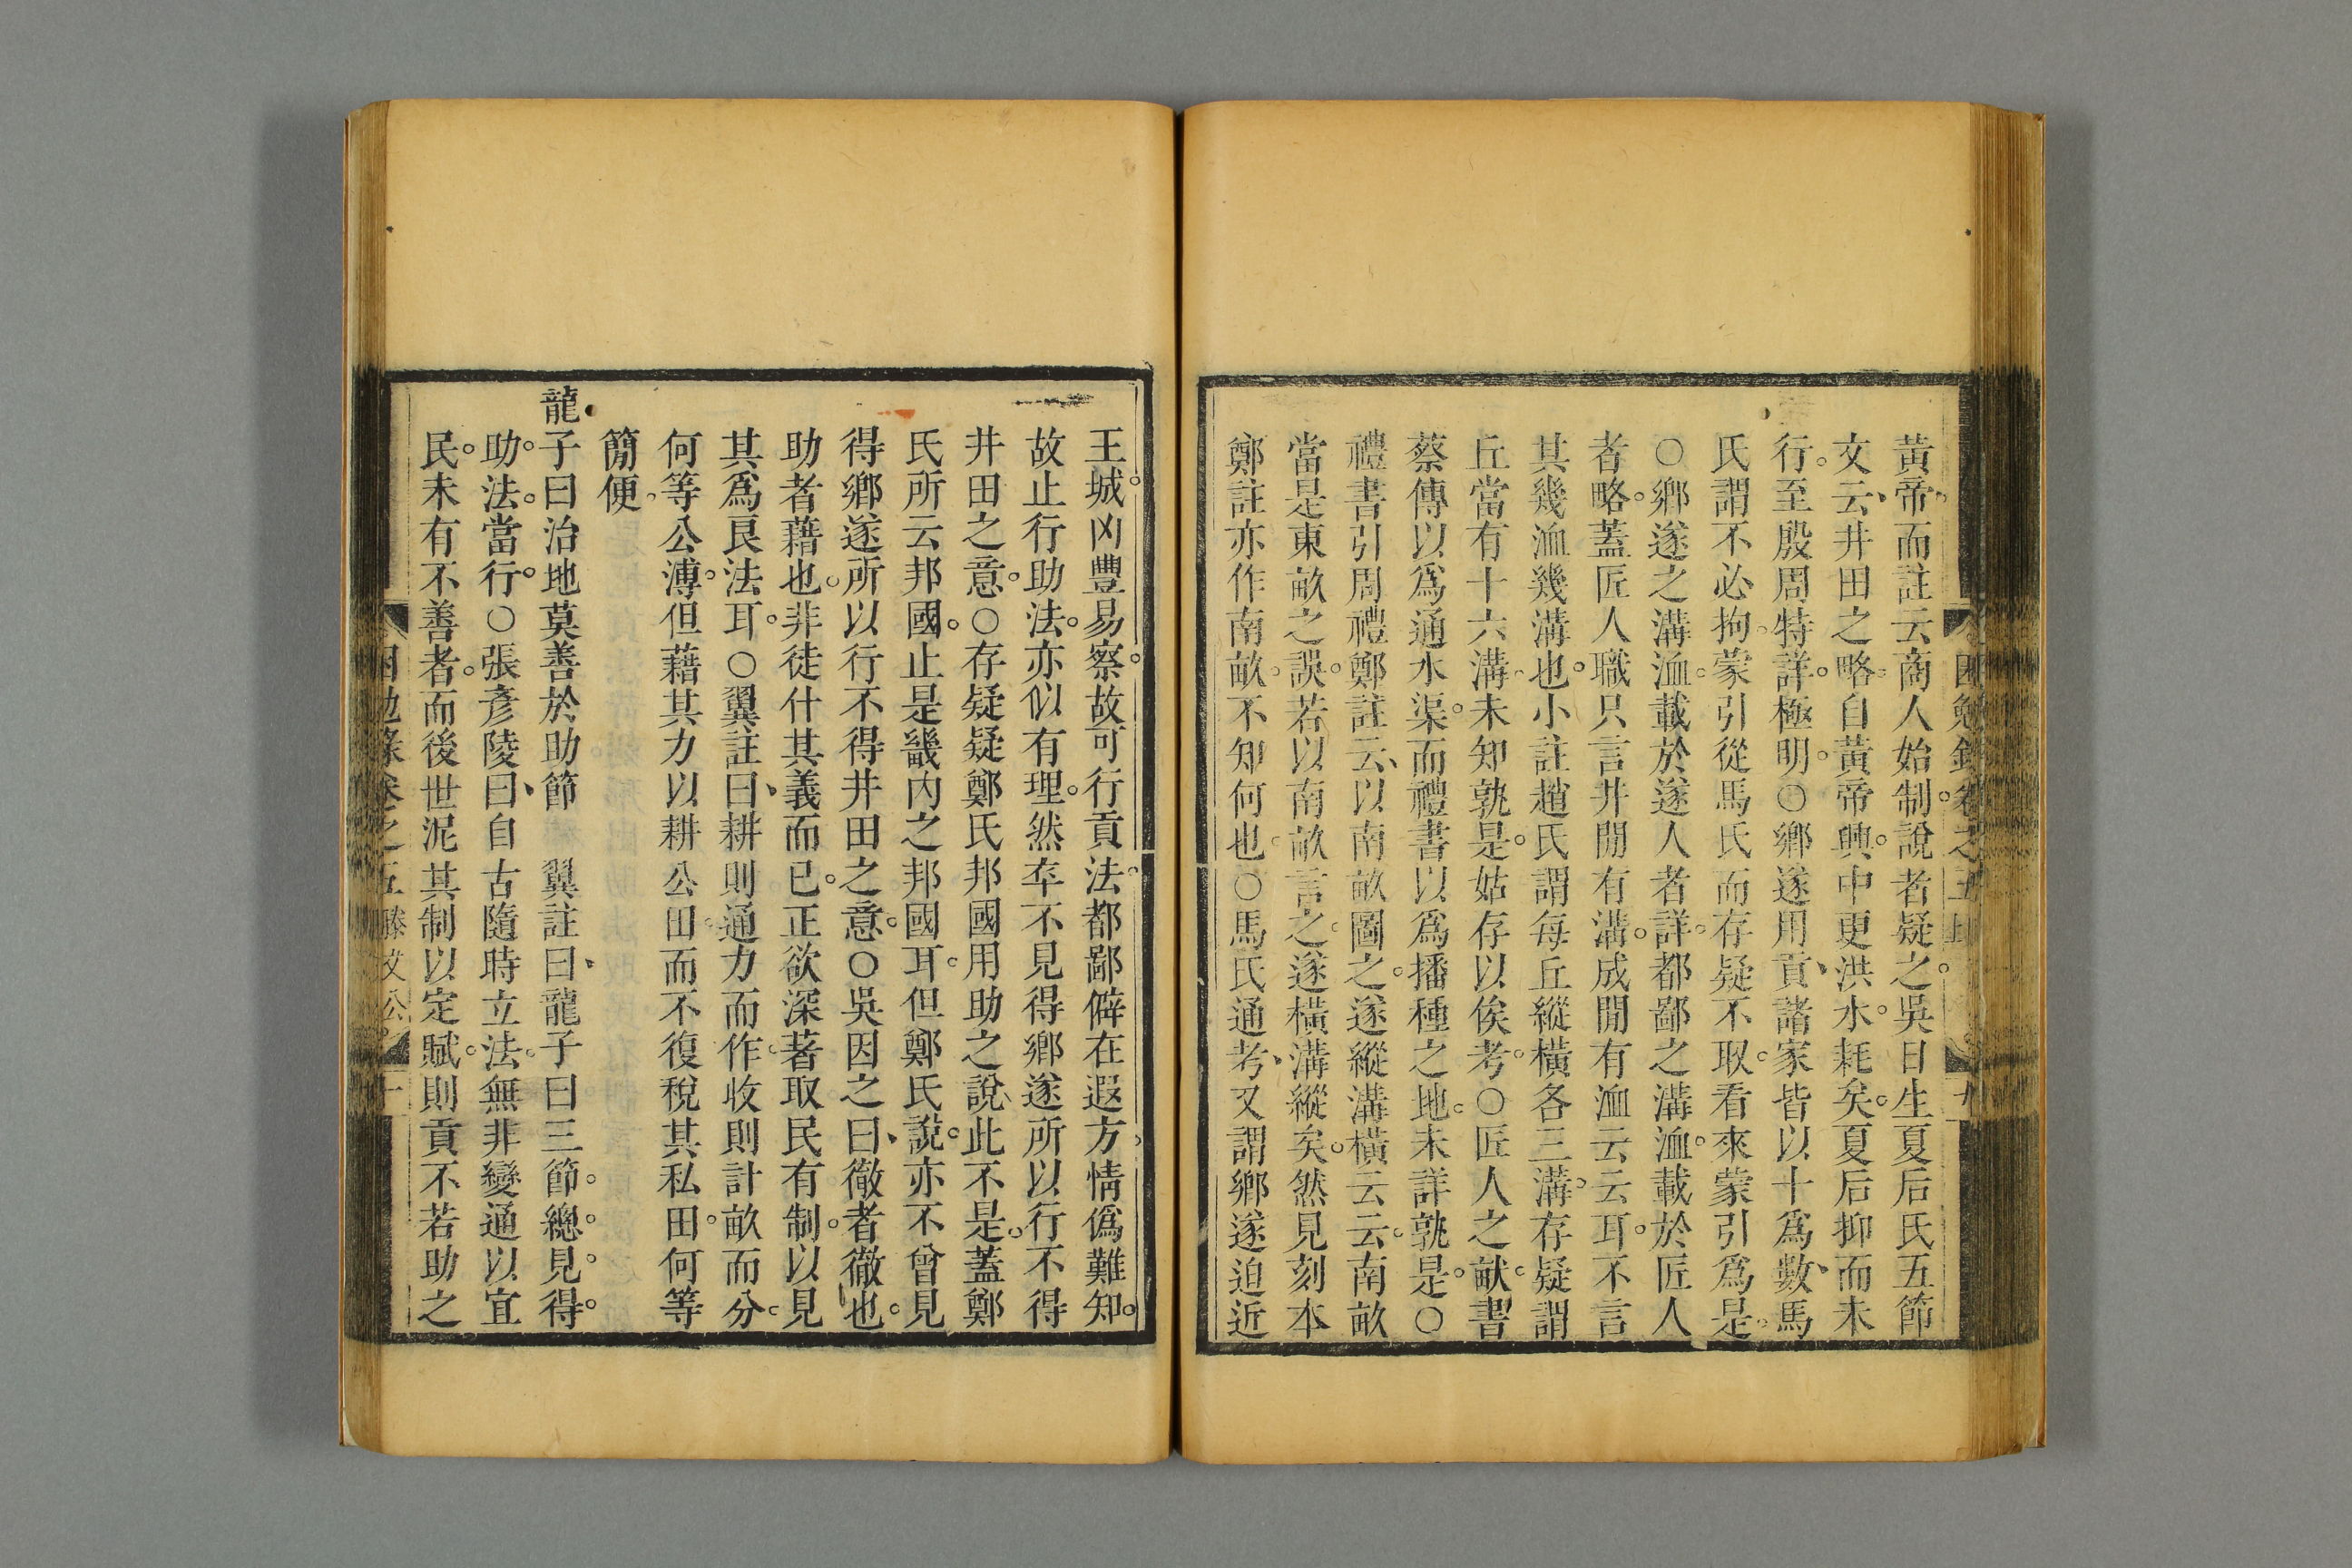 黃帝而註云商人始制說者疑之吳日生夏后氏五節
文云井田之略自黃帝興中更洪水耗矣夏后抑而未
行至殷周特詳極明○鄉遂用貢諸家皆以十爲數馬
氏謂不必拘蒙引從馬氏而存疑不取看來蒙引爲是
○鄉遂之溝洫載於遂人者詳都鄙之溝洫載於匠人
者略蓋匠人職只言井閒有溝成閒有洫云云耳不言
其幾洫幾溝也小註趙氏謂每丘縱橫各三溝存疑謂
丘當有十六溝未知孰是姑存以俟考○匠人之畎書
蔡傳以爲通水渠而禮書以爲播種之地未詳孰是○
禮書引周禮鄭註云以南畝圖之遂縱溝橫云云南畝
當是東畝之誤若以南畝言之遂橫溝縱矣然見刻本
鄭註亦作南畝不知何也○馬氏通考又謂鄉遂迫近
王城凶豐易察故可行貢法都鄙僻在遐方情僞難知
故止行助法亦似有理然卒不見得鄉遂所以行不得
井田之意○存疑疑鄭氏邦國用助之說此不是蓋鄭
氏所云邦國止是畿內之邦國耳但鄭氏說亦不曾見
得鄉遂所以行不得井田之意○吳因之曰徹者徹也
助者藉也非徒什其義而已正欲深著取民有制以見
其爲良法耳○翼註曰耕則通力而作收則計畝而分
何等公溥但藉其力以耕公田而不復稅其私田何等
簡便
龍子曰治地莫善於助節　翼註曰龍子曰三節總見得
助法當行○張彥陵曰自古隨時立法無非變通以宜
民未有不善者而後世泥其制以定賦則貢不若助之
卷之五滕文公